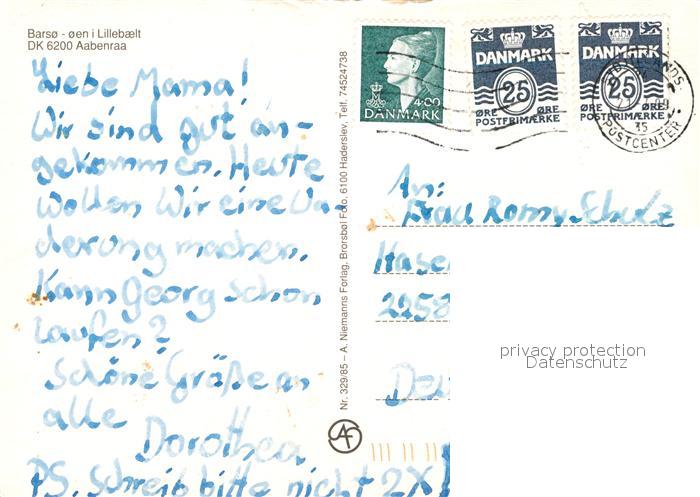 Barsø - øen i Lillebælt
DK 6200 Aabenraa
Liebe Mama!
Wir sind gut an-
gekommen. Heute
wollen Wir eine Va
derung machen.
Kann Georg schon
laufen?
Schöne Größe an
alle
Dorothea
PS. Schreib bitte nicht 2X
Nr. 329/85 – A. Niemanns Forlag, Brorsbøl Foto, 6100 Haderslev, Telf. 74524738
4.00
DANMARK
DANMARK
25
ØRE ØRE
POSTFRIMÆRKE
DANMARK
25
ØRE ØRE
POSTFRIMÆRKE
35
POSTCENTER
An:
Frau Romy Schulz
Hase
2258
Deu
privacy protection
Datenschutz